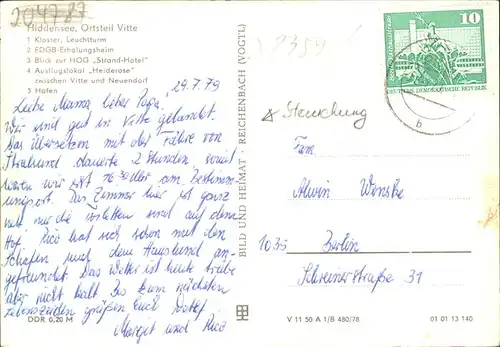 204787
Hiddensee, Ortsteil Vitte
1 Kloster, Leuchtturm
2 FDGB-Erholungsheim
3 Blick zur HOG „Strand-Hotel"
4 Ausflugslokal „Heiderose"
zwischen Vitte und Neuendorf
5 Hafen
29.7.79
Liebe Mama, lieber Papa,
Wir sind gut in Vitte gelandet.
Das Übersetzen mit der Fähre von
Stralsund dauerte 2 Stunden somit
waren wir erst 16 30 Uhr am Bestimm-
ungsort. Das Zimmer hier ist ganz
nett nur die Toiletten sind auf dem
Hof. Rico hat sich schon mit den
Schafen und dem Haushund an-
gefreundet. Das Wetter ist heute trübe
aber nicht kalt. Bis zum nächsten
Lebenszeichen grüßen Euch Detlef
Margit und Rico
DDR 0,20 M
BILD UND HEIMAT · REICHENBACH (VOGTL)
10
DEUTSCHE DEMOKRATISCHE REPUBLIK
b
Fam.
Alwin
1035 Berlin
Schreinerstraße 31
V 11 50 A 1/B 480/78
01 01 13 140